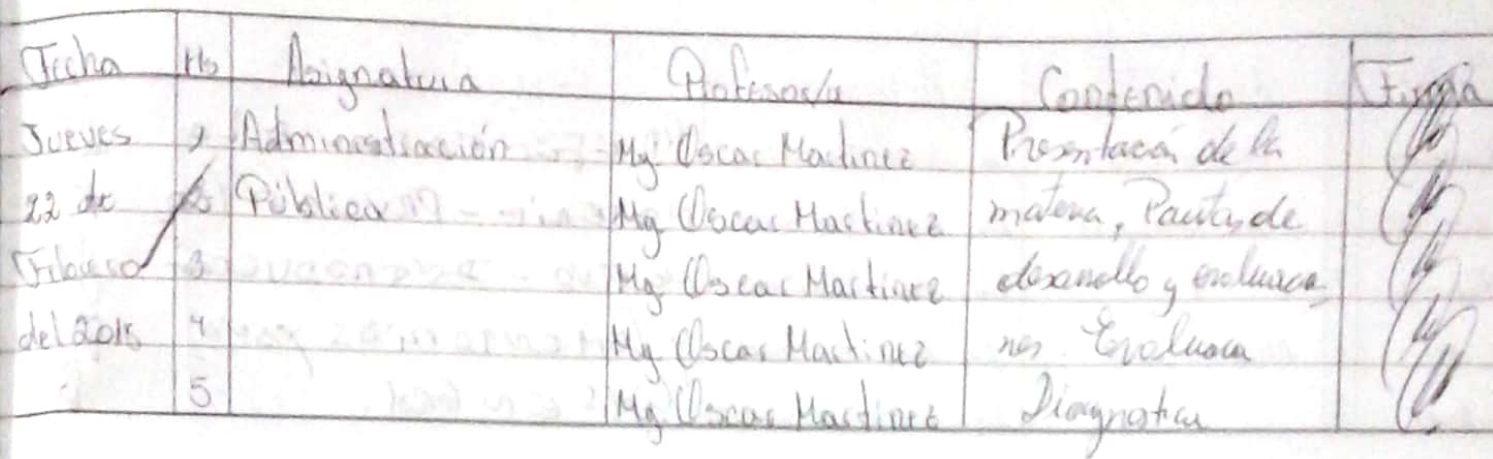 Fecha Hs Asignatura Profesor/a Contenido Firma
Jueves Administración Mg Oscar Martinez Presentación de la
22 de Pública Mg Oscar Martinez materia, Pautas de
Febrero 3 Mg Oscar Martinez desarrollo y evaluacio
del 2015 4 Mg Oscar Martinez nes Evaluacion
5 Mg Oscar Martinez Diagnostica